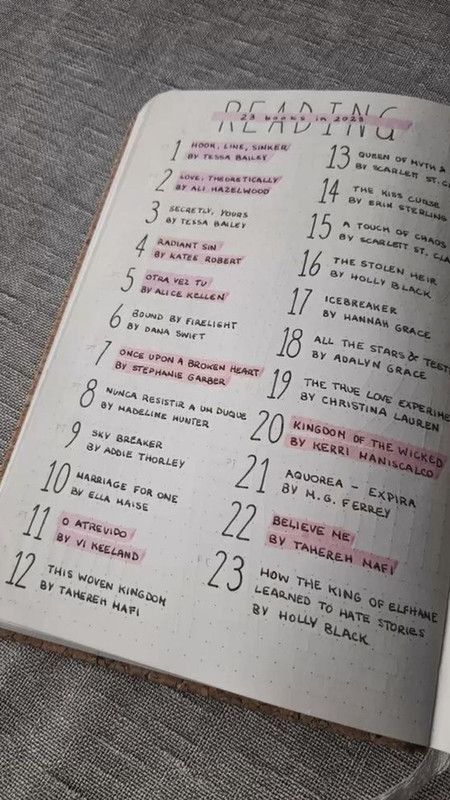 READING
23 books in 2023
1 HOOK, LINE, SINKER
BY TESSA BAILEY
2 LOVE, THEORETICALLY
BY ALI HAZELWOOD
3 SECRETLY, YOURS
BY TESSA BAILEY
4 RADIANT SIN
BY KATEE ROBERT
5 OTRA VEZ TU
BY ALICE KELLEN
6 BOUND BY FIRELIGHT
BY DANA SWIFT
7 ONCE UPON A BROKEN HEART
BY STEPHANIE GARBER
8 NUNCA RESISTIR A UM DUQUE
BY MADELINE HUNTER
9 SKY BREAKER
BY ADDIE THORLEY
10 MARRIAGE FOR ONE
BY ELLA MAISE
11 O ATREVIDO
BY VI KEELAND
12 THIS WOVEN KINGDOM
BY TAHEREH MAFI
13 QUEEN OF MYTH &
BY SCARLETT ST. C
14 THE KISS CURSE
BY ERIN STERLING
15 A TOUCH OF CHAOS
BY SCARLETT ST. CLA
16 THE STOLEN HEIR
BY HOLLY BLACK
17 ICEBREAKER
BY HANNAH GRACE
18 ALL THE STARS & TEET
BY ADALYN GRACE
19 THE TRUE LOVE EXPERIME
BY CHRISTINA LAUREN
20 KINGDOM OF THE WICKED
BY KERRI MANISCALCO
21 AQUOREA - EXPIRA
BY M.G. FERREY
22 BELIEVE ME
BY TAHEREH MAFI
23 HOW THE KING OF ELFHAME
LEARNED TO HATE STORIES
BY HOLLY BLACK